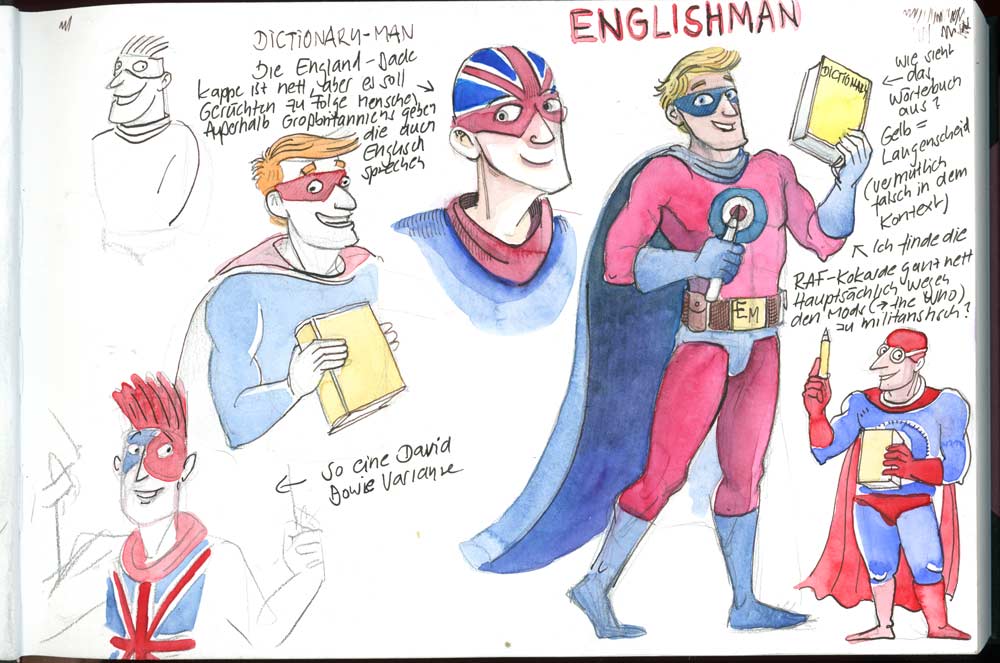 ENGLISHMAN
DICTIONARY-MAN
Die England-Bade
kappe ist nett, aber es soll
Gerüchten zu Folge Menschen
außerhalb Großbritanniens geben
die auch
Englisch
sprechen
DICTIONARY
Wie sieht
das
Wörterbuch
aus?
Gelb =
Langenscheid
(vermutlich
falsch in dem
Kontext)
Ich finde die
RAF-Kokarde ganz nett
Hauptsächlich wegen
den Mods (→ the WHO)
zu militaristisch?
EM
So eine David
Bowie Variante